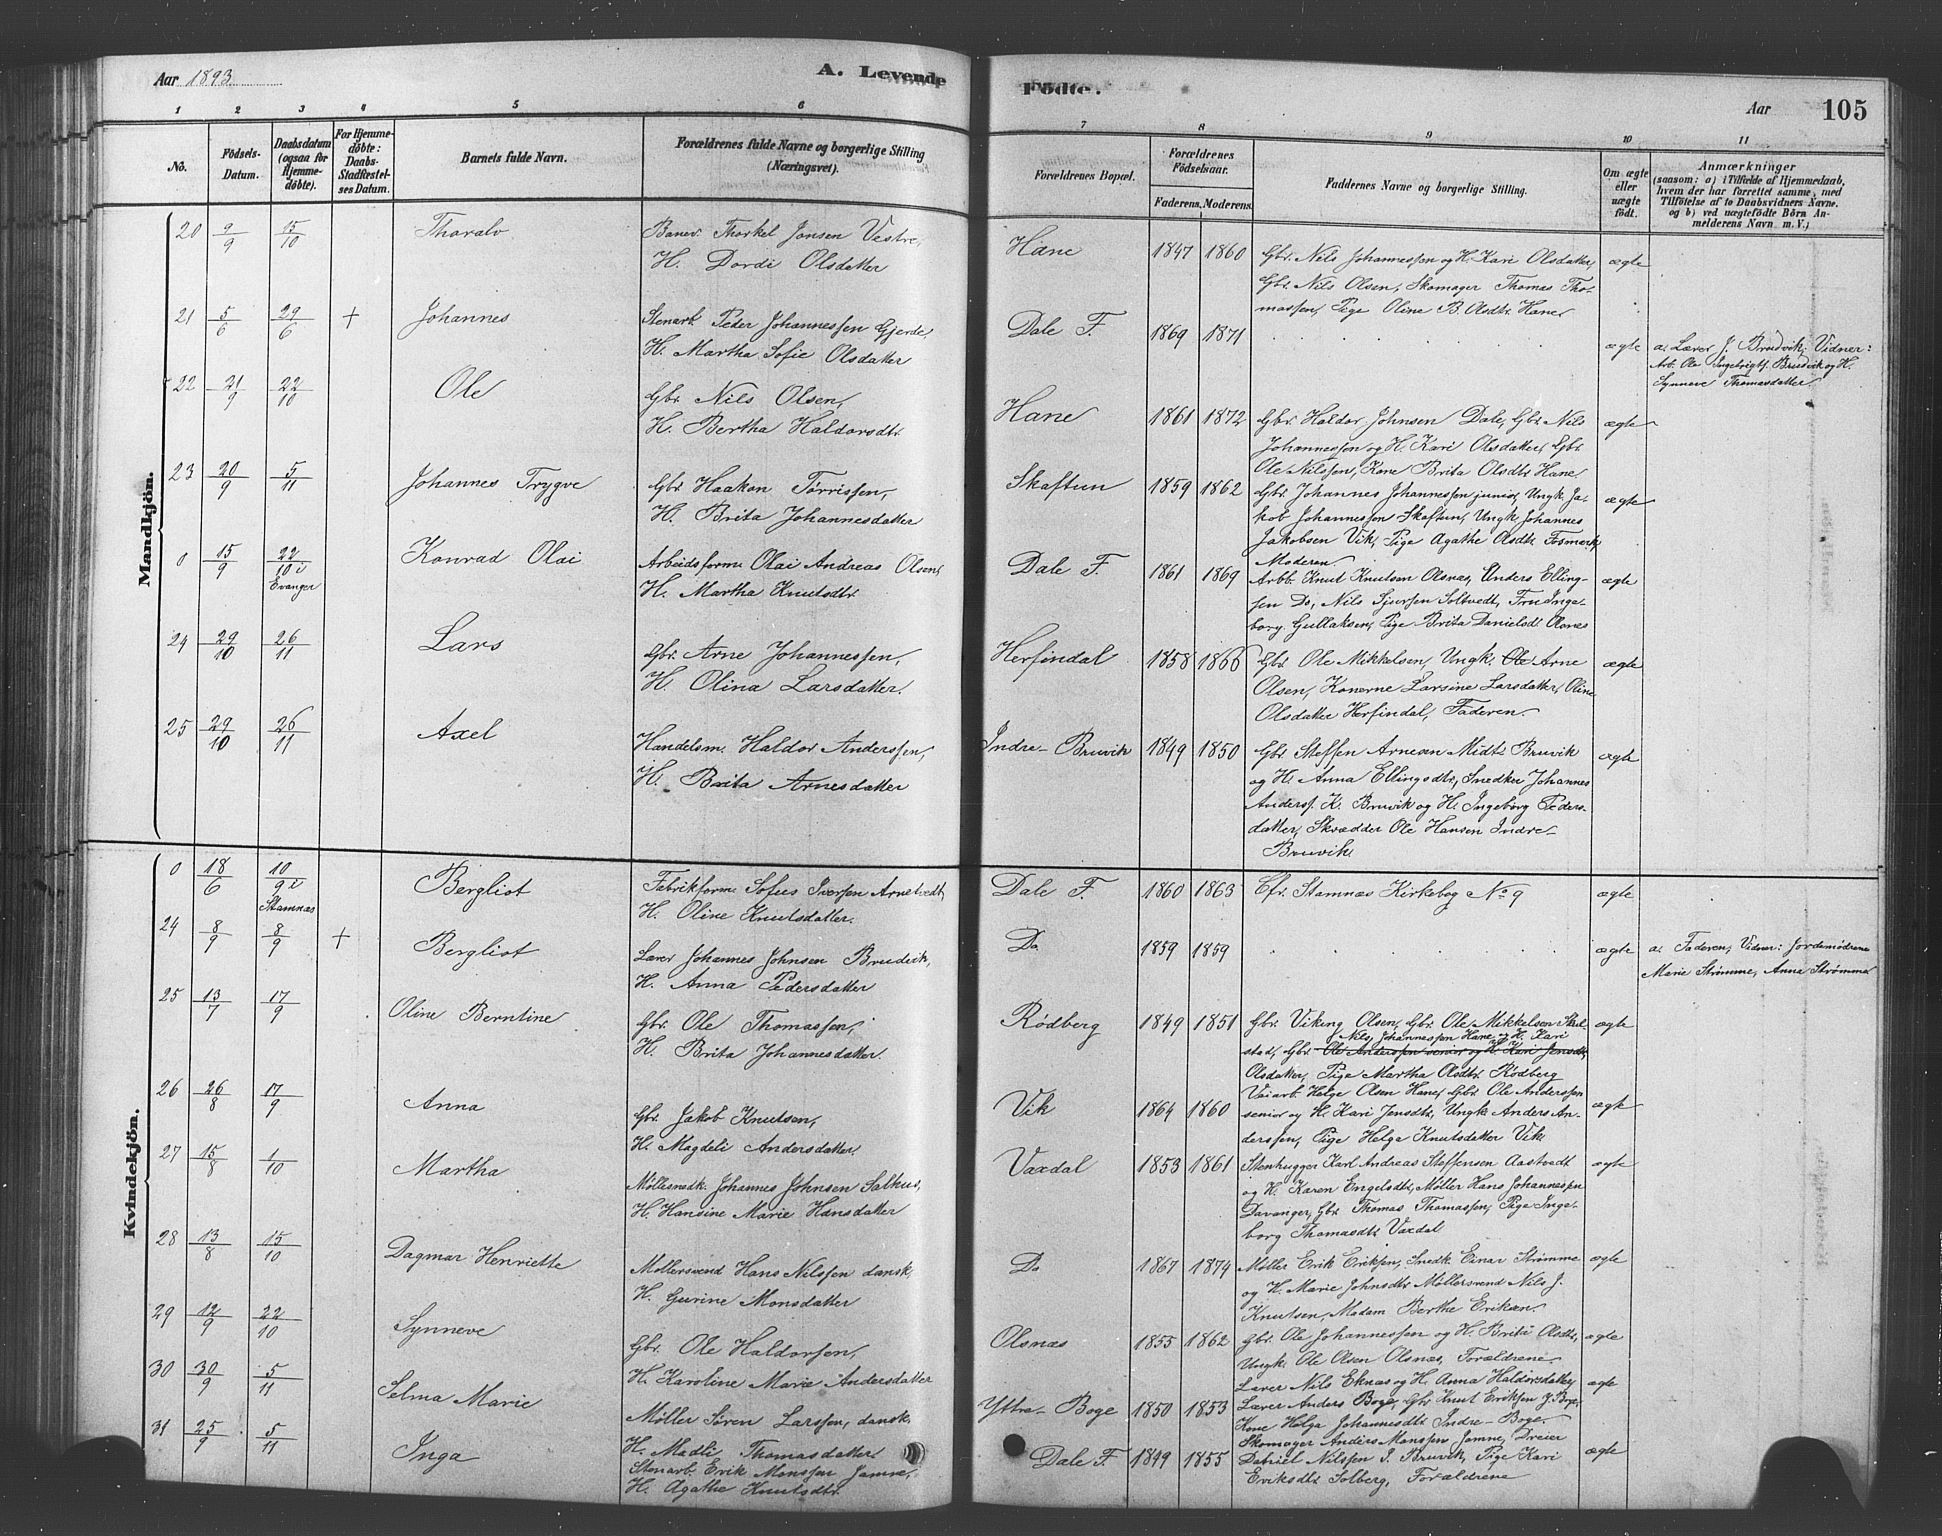 Aar 1893
A. Levende
Fødte.
Aar 105
1 2 3 4 5 6 7 8 9 10 11
No.
Födsels-Datum.
Daabsdatum (ogsaa for Hjemme-döbte).
For Hjemme-döbte: Daabs-Stadfæstel-ses Datum.
Barnets fulde Navn.
Forældrenes fulde Navne og borgerlige Stilling (Næringsvei).
Forældrenes Bopæl.
Forældrenes Födselsaar.
Faderens. Moderens.
Faddernes Navne og borgerlige Stilling.
Om ægte eller uægte födt.
Anmærkninger
(saasom: a) i Tilfælde af Hjemmedaab,
hvem der har forrettet samme, med
Tilföielse af to Daabsvidners Navne.
og b) ved uægtefödte Börn An-
melderens Navn m. V.)
Mandkjön.
20 9/9 15/10 Thoralv
Banev. Thorkel Jonsen Vestre,
H. Dordi Olsdatter
Hane 1847 1860
Gbr. Nils Johannessen og H. Kari Olsdatter,
Gbr. Nils Olsen, Skomager Thomas Tho-
massen, Pige Oline B. Olsdtr. Hane
ægte
21 5/6 29/6 + Johannes
Stenarb. Peder Johannessen Gjerde,
H. Martha Sofie Olsdatter
Dale F. 1869 1871
ægte
a. Lærer J. Brudvik; Vidner:
Arb. Ole Ingebrigts. Bruvik og H.
Synneve Thomasdatter
22 21/9 22/10 Ole
Gbr. Nils Olsen,
H. Bertha Haldorsdtr.
Hane 1861 1872
Gbr. Haldor Johnsen Dale, Gbr. Nils
Johannessen og H. Kari Olsdatter, Gbr.
Ole Nilssen, Kone Brita Olsdtr. Hane
ægte
23 20/9 5/11 Johannes Trygve
Gbr. Haakon Tørrissen,
H. Brita Johannesdatter
Skaftun 1859 1862
Gbr. Johannes Johannessen junior, Ungk. Ja-
kob Johannessen Skaftun, Ungk. Johannes
Jakobsen Vik, Pige Agathe Olsdtr. Fosmark,
Moderen.
ægte
0 15/9 22/10 i Evanger Konrad Olai
Arbeidsform. Olai Andreas Olsen,
H. Martha Knutsdtr.
Dale F. 1861 1869
Arbb. Knut Knutsen Olsnæs, Anders Elling-
sen Do, Nils Sjursen Soltvedt, Fru Inge-
borg Gullaksen, Pige Brita Danielsd. Olsnes
ægte
24 29/10 26/11 Lars
Gbr. Arne Johannessen,
H. Olina Larsdatter.
Herfindal 1858 1866
Gbr. Ole Mikkelsen, Ungk. Ole Arne
Olsen, Konerne Larsine Larsdatter, Oline
Olsdatter Herfindal, Faderen.
ægte
25 29/10 26/11 Axel
Handelsm. Haldor Anderssen,
H. Brita Arnesdatter
Indre-Bruvik 1849 1850
Gbr. Steffen Arnesen Midt-Bruvik
og H. Anna Ellingsdtr., Snedker Johannes
Anderss. K. Bruvik og H. Ingeborg Peders-
datter, Skrædder Ole Hansen Indre-
Bruvik
ægte
Kvindekjön.
0 18/6 10/9 i Stamnæs Bergliot
Fabrikform. Sofus Iversen Arnetvedt,
H. Oline Knutsdatter.
Dale F. 1860 1863
Cfr. Stamnæs Kirkebog No 9
ægte
24 8/9 8/9 + Bergliot
Lærer Johannes Johnsen Brudvik,
H. Anna Pedersdatter
Do 1859 1859
ægte
a. Faderen, Vidner: Jordemødrene
Marie Strømme, Anna Strømme
25 13/7 17/9 Oline Berntine
Gbr. Ole Thomassen,
H. Brita Johannesdatter.
Rødberg 1849 1851
Gbr. Viking Olsen, Gbr. Ole Mikkelsen Skul-
Nils Johannessen Hane og H. Kari
stad, Gbr. Ole Anderssen senior og H. Kari Jensdtr,
Olsdatter, Pige Martha Olsdtr. Rødberg
ægte
26 26/8 17/9 Anna
Gbr. Jakob Knutsen,
H. Magdeli Andersdatter.
Vik 1864 1860
Veiarb. Helge Olsen Hane, Gbr. Ole Anderssen
senior og H. Kari Jensdtr, Ungk. Anders An-
derssen, Pige Helga Knutsdatter Vik
ægte
27 15/8 1/10 Martha
Møllesnedk. Johannes Johnsen Salhus,
H. Hansine Marie Hansdatter
Vaxdal 1853 1861
Stenhugger Karl Andreas Steffensen Aastvedt
og H. Karen Engelsdtr, Møller Hans Johannessen
Davanger, Gbr. Thomas Thomassen, Pige Inge-
borg Thomasdtr. Vaxdal
ægte
28 13/8 15/10 Dagmar Henriette
Møllersvend Hans Nilssen dansk,
H. Gurine Monsdatter
Do 1867 1874
Møller Erik Eriksen, Snedk. Einar Strømme
og H. Marie Johnsdtr. Møllersvend Nils J.
Knutsen, Madam Berthe Eriksen.
ægte
29 12/9 22/10 Synneve
Gbr. Ole Haldorsen,
H. Karoline Marie Andersdatter
Olsnæs 1855 1862
Gbr. Ole Johannessen og H. Brita Olsdtr,
Ungk. Ole Olsen Olsnæs, Forældrene
ægte
30 30/9 5/11 Selma Marie
Møller Søren Larssen, dansk,
H. Madli Thomasdatter
Yttre-Boge 1850 1853
Lærer Nils Eknæs og H. Anna Haldorsdatter,
Lærer Anders Boge, Gbr. Knut Eriksen Y. Boge,
Kone Helga Johannesdtr. Indre-Boge.
ægte
31 25/9 5/11 Inga
Stenarb. Erik Monssen Jamne,
H. Agathe Knutsdtr.
Dale F. 1849 1855
Skomager Anders Monssen Jamne, Dreier
Daniel Nilssen I. Bruvik, Pige Kari
Eriksdtr. Solberg, Forældrene
ægte